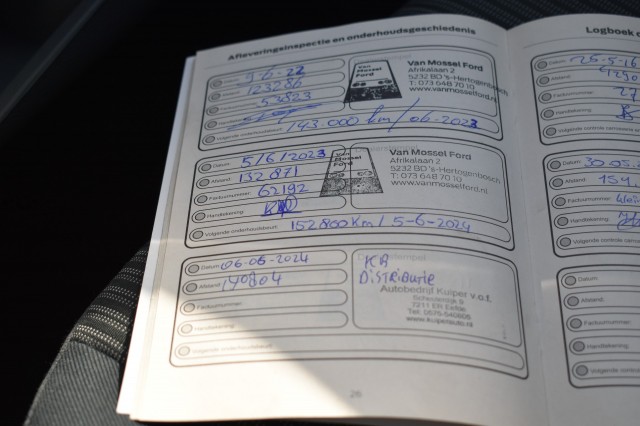 Afleveringsinspectie en onderhoudsgeschiedenis
Datum
Afstand 123286
53823
143 000 km / 06-2023
Van Mossel Ford
Van Mossel Ford
Afrikalaan 2
5232 BD 's-Hertogenbosch
T: 073 648 70 10
www.vanmosselford.nl
Datum 5/6/2023
Afstand 132 871
Factuurnummer 62192
Handtekening
Volgende onderhoudsbeurt 152 800 Km / 5-6-2024
Van Mossel Ford
Van Mossel Ford
Afrikalaan 2
5232 BD 's-Hertogenbosch
T: 073 648 70 10
www.vanmosselford.nl
Datum 06-06-2024
Afstand 140804
Factuurnummer
Handtekening
Volgende onderhoudsbeurt
KB
DISTRIBUTIE
Autobedrijf Kuiper v.o.f.
7211 ER Eefde
Tel: 0575-540605
www.kuiperauto.nl
26
Logboek
Datum 25-5-16
Afstand
Factuurnummer 27
Handtekening
Volgende controle carrosserie
Datum 30.05
Afstand
Factuurnummer
Handtekening
Volgende controle
Datum
Afstand
Factuurnummer
Handtekening
Volgende controle